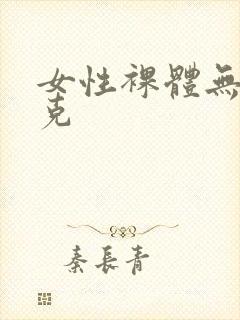 女性裸體無
克
秦長青